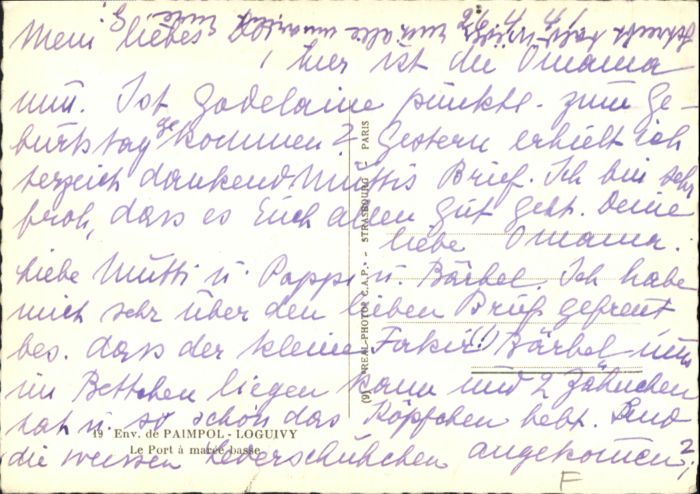 26. 4. 41
Mein liebes
hier ist die Omama
nun. Ist Godelaine pünktl. zum Ge-
burtstag gekommen? Gestern erhielt ich
herzlich dankend Muttis Brief. Ich bin sehr
froh, dass es Euch allen gut geht. Deine
liebe Omama.
Liebe Mutti u. Pappi u. Bärbel. Ich habe
mich sehr über den lieben Brief gefreut
bes. dass der kleine Fakir (!) Bärbel nun
im Bettchen liegen kann und 2 Zähnchen
hat u. so schön das Köpfchen hebt. Sind
die weissen Lederschühchen angekommen?
19 Env. de PAIMPOL - LOGUIVY
Le Port à marée basse
"REAL-PHOTO" C.A.P. - STRASBOURG - PARIS
F